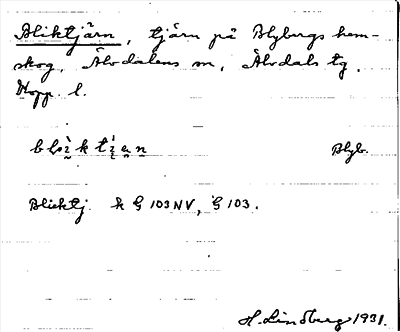 Bliktjärn, tjärn på Blybergs hem-
skog, Älvdalens sn, Älvdals tg.
Kopp. l.
Blyb.
Blicktj. k G 103 NV, G 103.
H. Lindberg 1931.